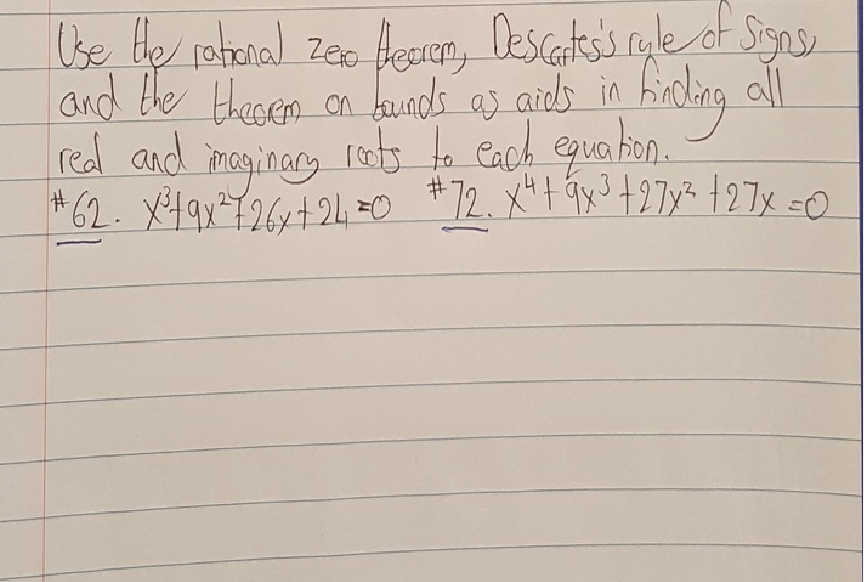 Use the rational zero theorem, Descartes's rule of signs,
and the theorem on bounds as aids in finding all
real and imaginary roots to each equation.
#62. x³+9x²+26x+24=0 #72. x⁴+9x³+27x²+27x=0